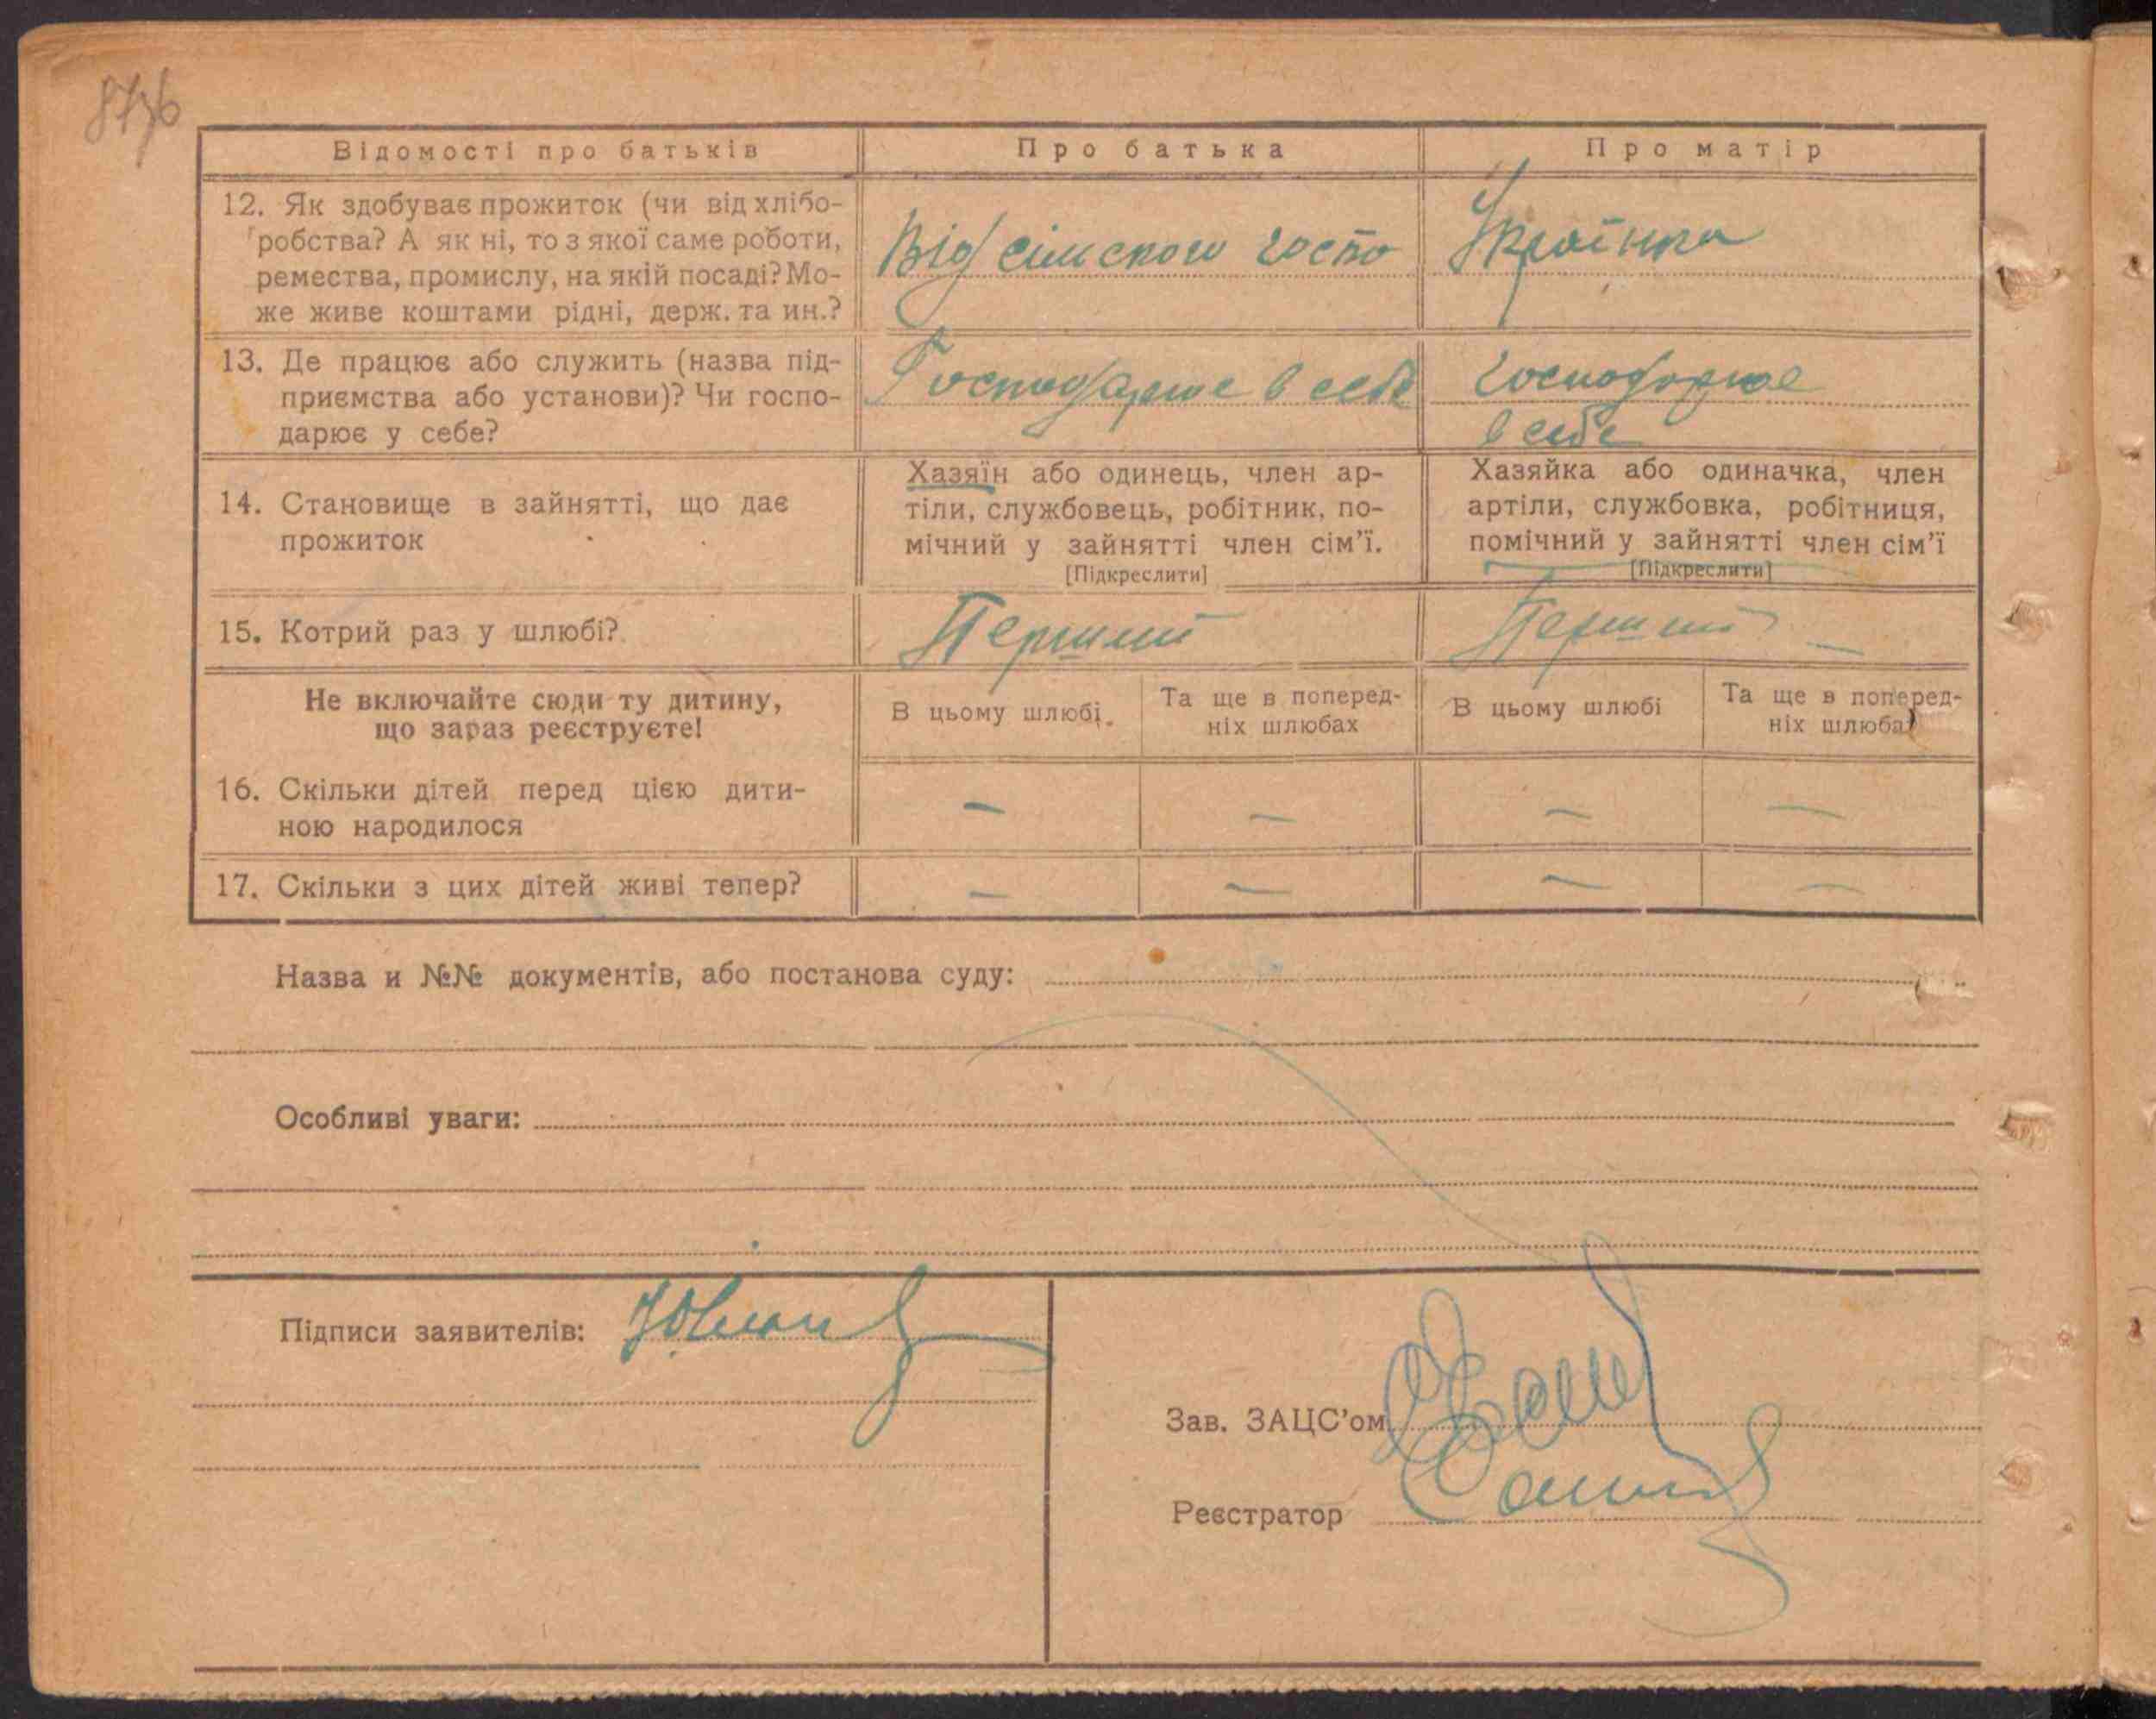 Відомості про батьків
Про батька
Про матір
12. Як здобуває прожиток (чи від хлібо-
робства? А як ні, то з якої саме роботи,
ремества, промислу, на якій посаді? Мо-
же живе коштами рідні, держ. та ин.?
Від сільского госпо
Українка
13. Де працює або служить (назва під-
приємства або установи)? Чи госпо-
дарює у себе?
Господарює в себе
господорює
в себе
14. Становище в зайнятті, що дає
прожиток
Хазяїн або одинець, член ар-
тіли, службовець, робітник, по-
мічний у зайнятті член сім'ї.
[Підкреслити]
Хазяйка або одиначка, член
артіли, службовка, робітниця,
помічний у зайнятті член сім'ї
[Підкреслити]
15. Котрий раз у шлюбі?
Перший
Перший
Не включайте сюди ту дитину,
що зараз реєструєте!
В цьому шлюбі
Та ще в поперед-
ніх шлюбах
В цьому шлюбі
Та ще в поперед-
ніх шлюбах
16. Скільки дітей перед цією дити-
ною народилося
— — — —
17. Скільки з цих дітей живі тепер?
— — — —
Назва и №№ документів, або постанова суду:
Особливі уваги:
Підписи заявителів:
Зав. ЗАЦС'ом
Реєстратор